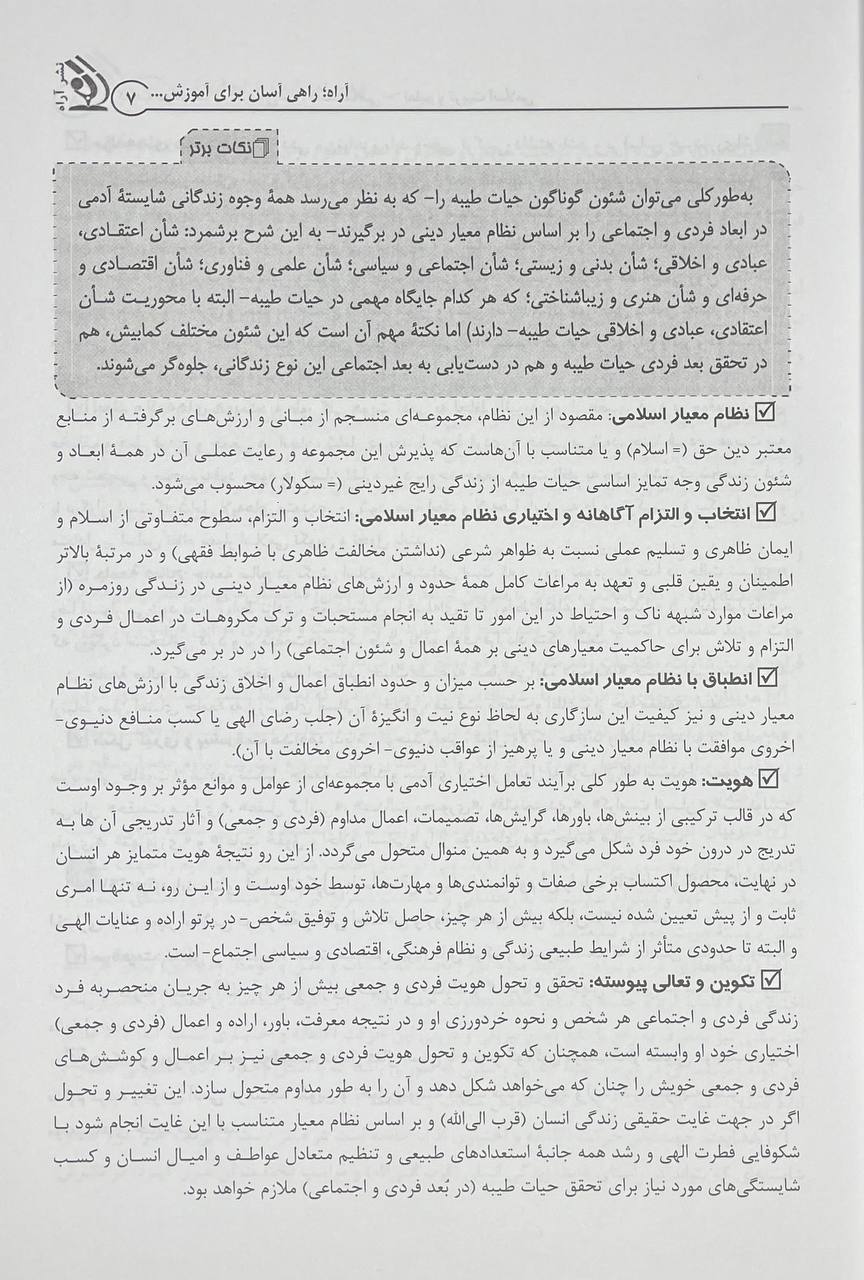 نشر آراه
۷
آراه؛ راهی آسان برای آموزش...
نکات برتر
به‌طورکلی می‌توان شئون گوناگون حیات طیبه را- که به نظر می‌رسد همهٔ وجوه زندگانی شایستهٔ آدمی
در ابعاد فردی و اجتماعی را بر اساس نظام معیار دینی در برگیرند- به این شرح برشمرد: شأن اعتقادی،
عبادی و اخلاقی؛ شأن بدنی و زیستی؛ شأن اجتماعی و سیاسی؛ شأن علمی و فناوری؛ شأن اقتصادی و
حرفه‌ای و شأن هنری و زیباشناختی؛ که هر کدام جایگاه مهمی در حیات طیبه- البته با محوریت شأن
اعتقادی، عبادی و اخلاقی حیات طیبه- دارند) اما نکتهٔ مهم آن است که این شئون مختلف کمابیش، هم
در تحقق بعد فردی حیات طیبه و هم در دست‌یابی به بعد اجتماعی این نوع زندگانی، جلوه‌گر می‌شوند.
☑ نظام معیار اسلامی: مقصود از این نظام، مجموعه‌ای منسجم از مبانی و ارزش‌های برگرفته از منابع
معتبر دین حق (= اسلام) و یا متناسب با آن‌هاست که پذیرش این مجموعه و رعایت عملی آن در همهٔ ابعاد و
شئون زندگی وجه تمایز اساسی حیات طیبه از زندگی رایج غیردینی (= سکولار) محسوب می‌شود.
☑ انتخاب و التزام آگاهانه و اختیاری نظام معیار اسلامی: انتخاب و التزام، سطوح متفاوتی از اسلام و
ایمان ظاهری و تسلیم عملی نسبت به ظواهر شرعی (نداشتن مخالفت ظاهری با ضوابط فقهی) و در مرتبهٔ بالاتر
اطمینان و یقین قلبی و تعهد به مراعات کامل همهٔ حدود و ارزش‌های نظام معیار دینی در زندگی روزمره (از
مراعات موارد شبهه ناک و احتیاط در این امور تا تقید به انجام مستحبات و ترک مکروهات در اعمال فردی و
التزام و تلاش برای حاکمیت معیارهای دینی بر همهٔ اعمال و شئون اجتماعی) را در در بر می‌گیرد.
☑ انطباق با نظام معیار اسلامی: بر حسب میزان و حدود انطباق اعمال و اخلاق زندگی با ارزش‌های نظام
معیار دینی و نیز کیفیت این سازگاری به لحاظ نوع نیت و انگیزهٔ آن (جلب رضای الهی یا کسب منافع دنیوی-
اخروی موافقت با نظام معیار دینی و یا پرهیز از عواقب دنیوی- اخروی مخالفت با آن).
☑ هویت: هویت به طور کلی برآیند تعامل اختیاری آدمی با مجموعه‌ای از عوامل و موانع مؤثر بر وجود اوست
که در قالب ترکیبی از بینش‌ها، باورها، گرایش‌ها، تصمیمات، اعمال مداوم (فردی و جمعی) و آثار تدریجی آن ها به
تدریج در درون خود فرد شکل می‌گیرد و به همین منوال متحول می‌گردد. از این رو نتیجهٔ هویت متمایز هر انسان
در نهایت، محصول اکتساب برخی صفات و توانمندی‌ها و مهارت‌ها، توسط خود اوست و از این رو، نه تنها امری
ثابت و از پیش تعیین شده نیست، بلکه بیش از هر چیز، حاصل تلاش و توفیق شخص- در پرتو اراده و عنایات الهی
و البته تا حدودی متأثر از شرایط طبیعی زندگی و نظام فرهنگی، اقتصادی و سیاسی اجتماع- است.
☑ تکوین و تعالی پیوسته: تحقق و تحول هویت فردی و جمعی بیش از هر چیز به جریان منحصربه فرد
زندگی فردی و اجتماعی هر شخص و نحوه خردورزی او و در نتیجه معرفت، باور، اراده و اعمال (فردی و جمعی)
اختیاری خود او وابسته است، همچنان که تکوین و تحول هویت فردی و جمعی نیز بر اعمال و کوشش‌های
فردی و جمعی خویش را چنان که می‌خواهد شکل دهد و آن را به طور مداوم متحول سازد. این تغییر و تحول
اگر در جهت غایت حقیقی زندگی انسان (قرب الی‌الله) و بر اساس نظام معیار متناسب با این غایت انجام شود با
شکوفایی فطرت الهی و رشد همه جانبهٔ استعدادهای طبیعی و تنظیم متعادل عواطف و امیال انسان و کسب
شایستگی‌های مورد نیاز برای تحقق حیات طیبه (در بُعد فردی و اجتماعی) ملازم خواهد بود.